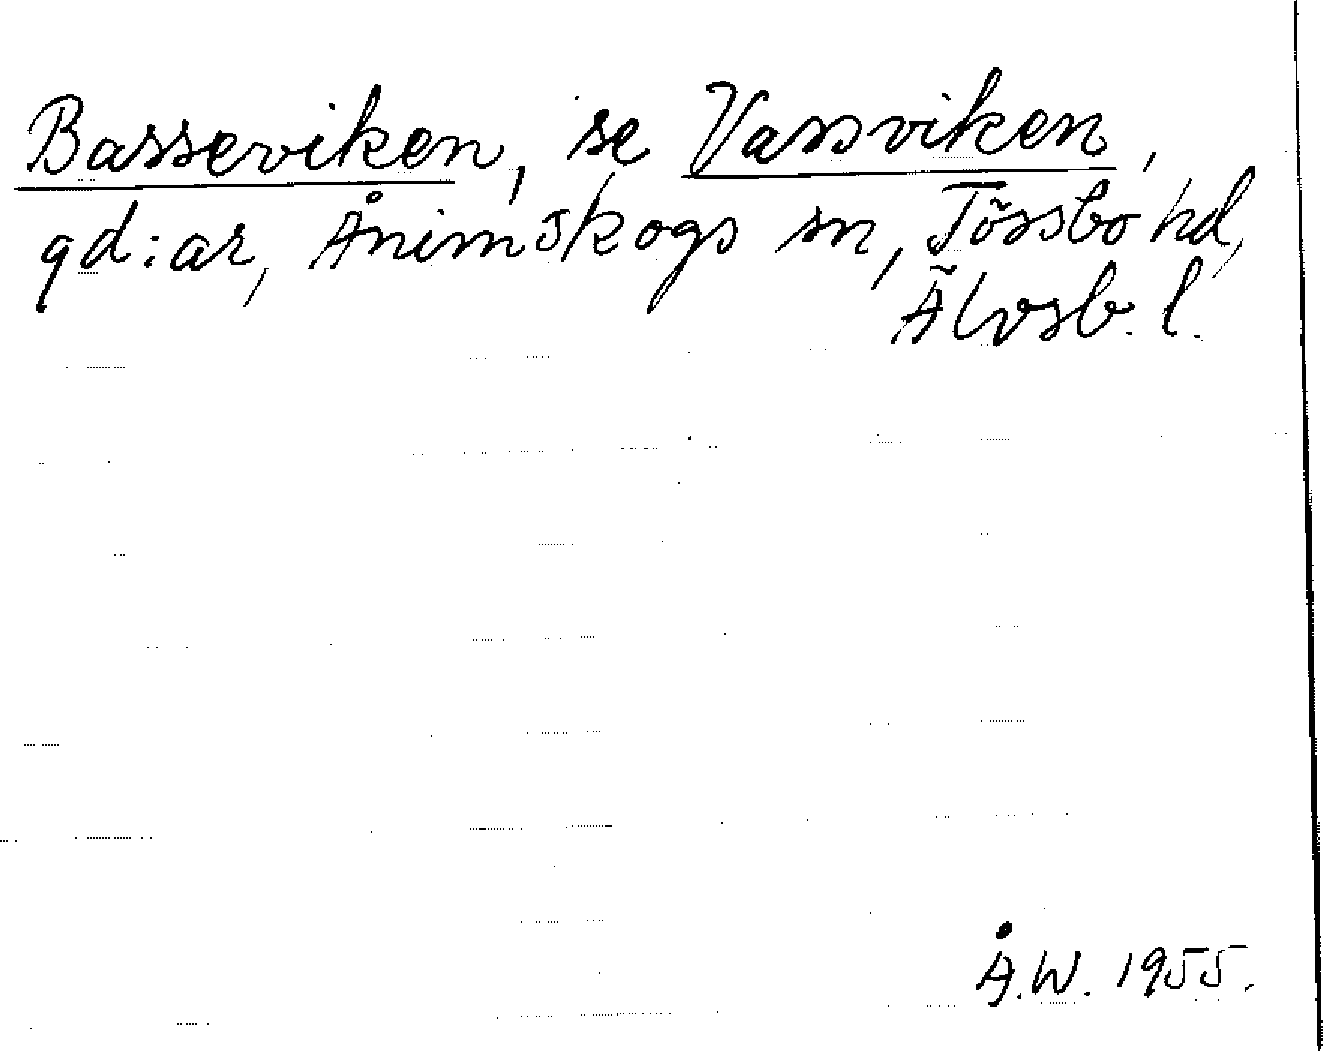 Basseviken, se Vassviken,
gd:ar, Ånimskogs sn, Tössbo hd,
Älvsb. l.
Å.W. 1955.